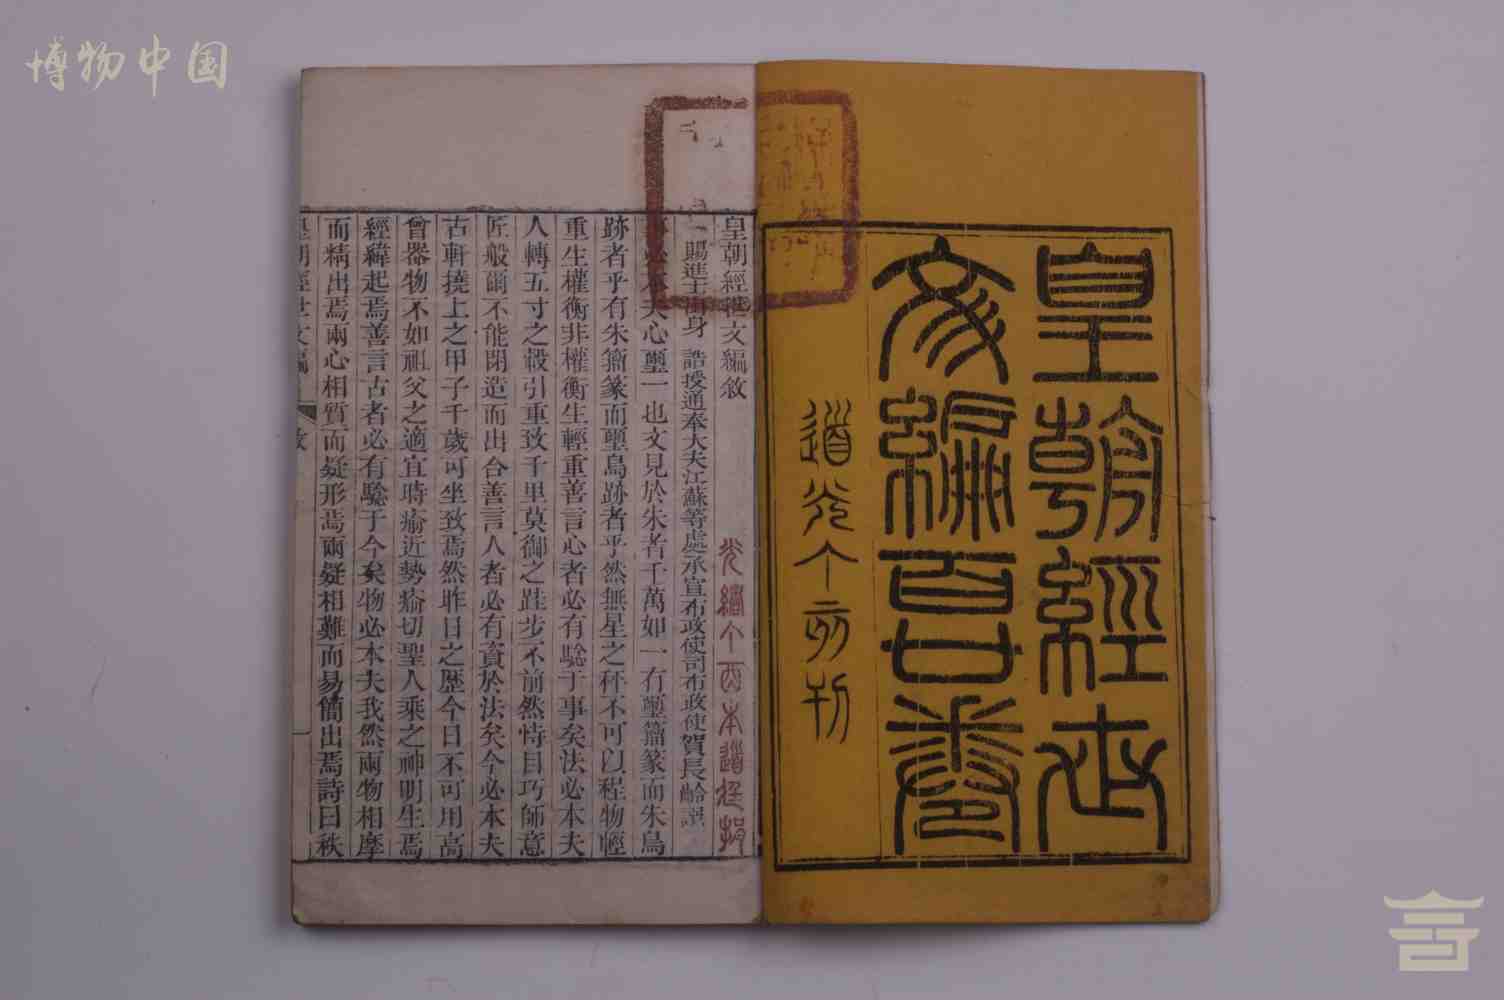 博物中国
皇朝經世
文編百廿卷
道光丁亥刊
皇朝經世文編敘
賜進士出身 誥授通奉大夫江蘇等處承宣布政使司布政使賀長齡譔
必本夫心璽一也文見於朱者千萬如一有璽籀篆而朱鳥
跡者乎有朱籀篆而璽鳥跡者乎然無星之秤不可以程物輕
重生權衡非權衡生輕重善言心者必有驗于事矣法必本夫
人轉五寸之轂引重致千里莫御之跬步不前然恃目巧師意
匠般爾不能閉造而出合善言人者必有資於法矣今必本夫
古軒撓上之甲子千歲可坐致焉然昨日之歷今日不可用高
曾器物不如祖父之適宜時瘉近勢瘉切聖人乘之神明生焉
經緯起焉善言古者必有驗于今矣物必本夫我然兩物相摩
而精出焉兩心相質而疑形焉兩疑相難而易簡出焉詩曰秩
皇朝經世文編 敘